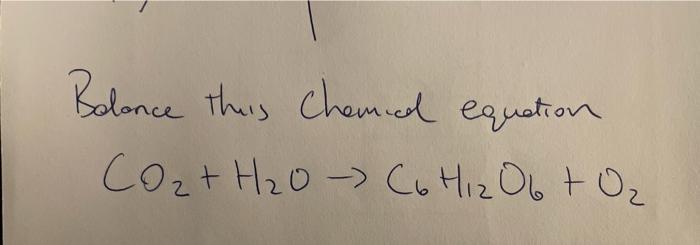 Balance this chemical equation
CO₂ + H₂O → C₆H₁₂O₆ + O₂